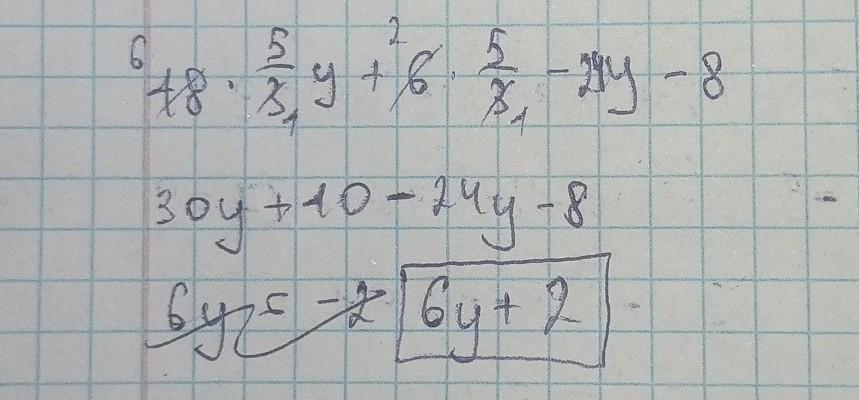 6 18 · 5/3 1 y + 2 6 · 5/3 1 - 24y - 8
30y + 10 - 24y - 8
6y = -2 6y + 2